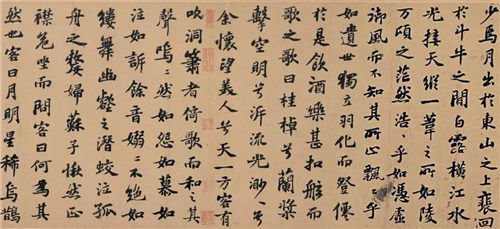 少焉月出於東山之上裴回
於斗牛之間白露橫江水
光接天縱一葦之所如陵
万頃之茫然浩〻乎如馮虛
御風而不知其所止飄〻乎
如遺世獨立羽化而登僊
於是飲酒樂甚扣舷而
歌之歌曰桂棹兮蘭槳
擊空明兮泝流光渺〻兮
余懷望美人兮天一方客有
吹洞簫者倚歌而和之其
聲嗚〻然如怨如慕如
泣如訴餘音嫋〻不絕如
縷舞幽壑之潛蛟泣孤
舟之嫠婦蘇子愀然正
襟危坐而問客曰何為其
然也客曰月明星稀烏鵲